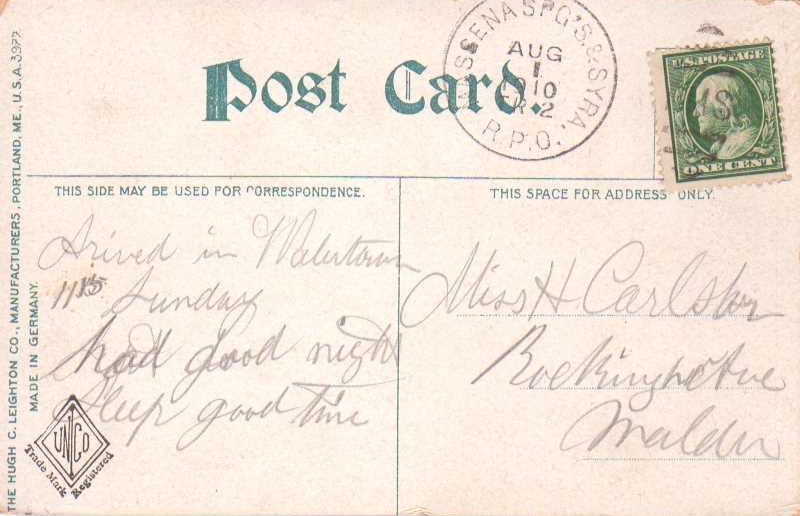 Post Card.
MASSENA SPG'S. & SYRA.
AUG
1
1910
R.P.O.
U.S. POSTAGE
ONE CENT
THIS SIDE MAY BE USED FOR CORRESPONDENCE.
THIS SPACE FOR ADDRESS ONLY.
Arived in Watertown
11 15 Sunday
had good night
Sleep good time
Miss H Carlson
Rockingham Ave
Malden
THE HUGH C. LEIGHTON CO., MANUFACTURERS, PORTLAND, ME., U.S.A. 3977.
MADE IN GERMANY.
UNCO
Trade Mark Registered